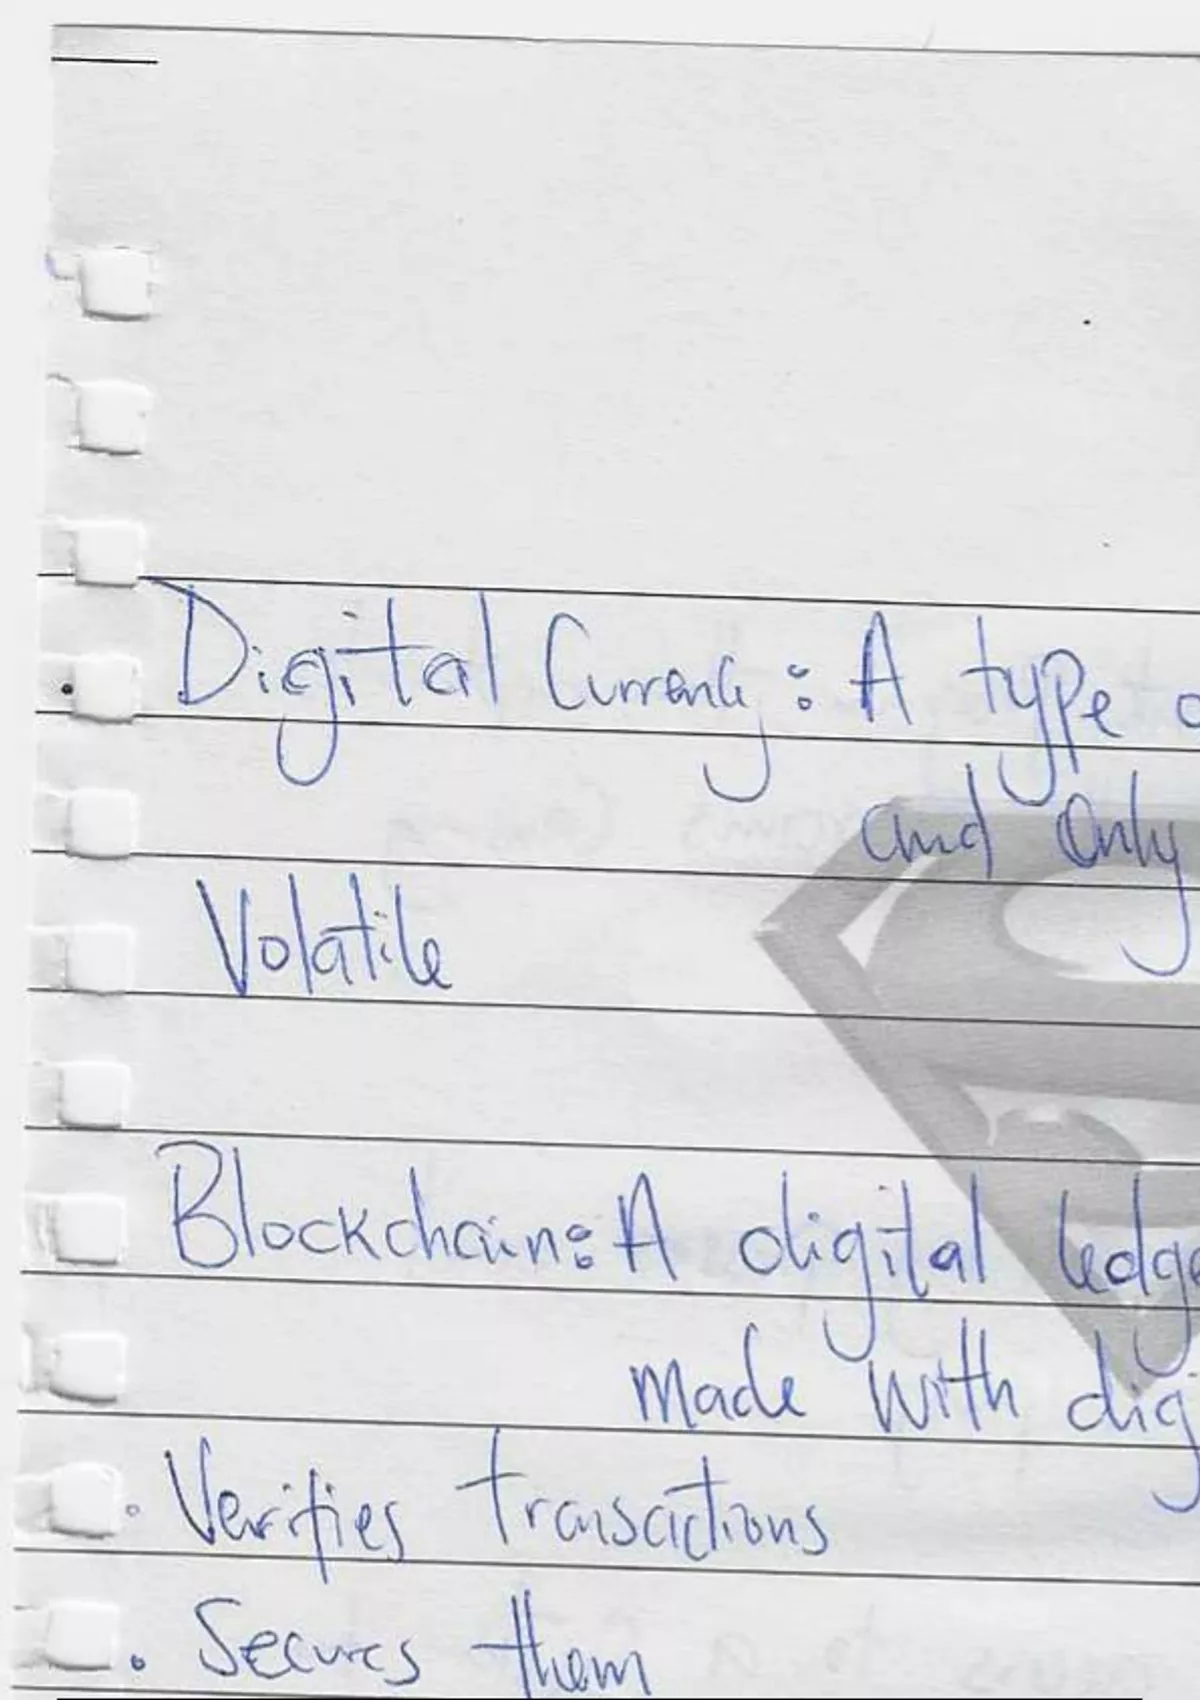 Digital Currency: A type
and only
Volatile
Blockchain: A digital ledge
made with dig
• Verifies transactions
• Secures them